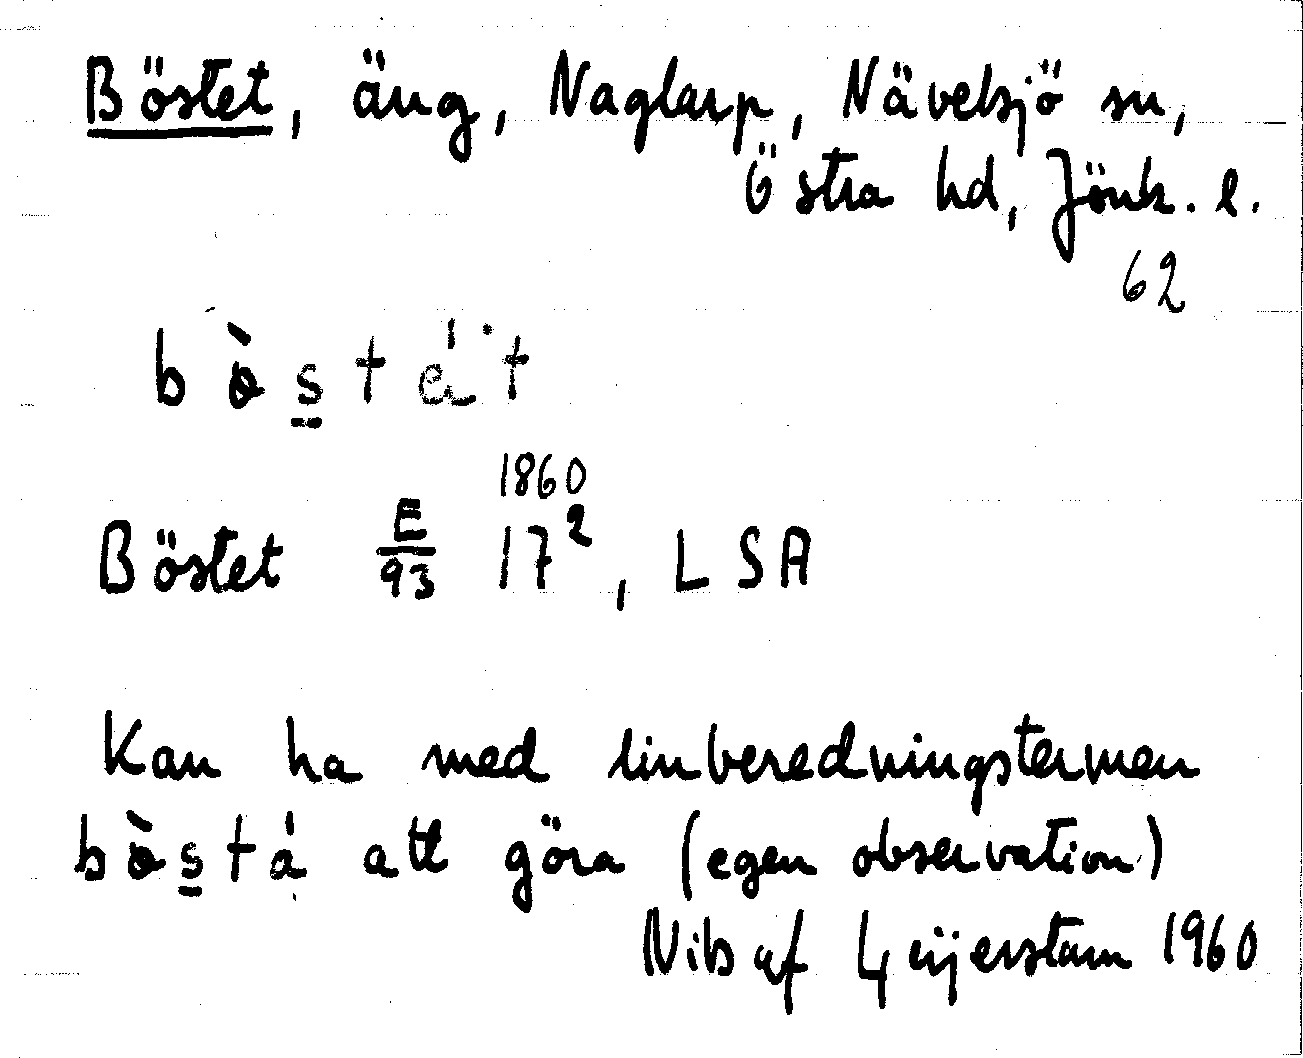 Böstet, äng, Naglarp, Nävelsjö sn,
Östra hd, Jönk. l.
62
Böstet E/93 1860 17², LSA
Kan ha med linberedningstermen
att göra (egen observation)
Nils af Geijerstam 1960